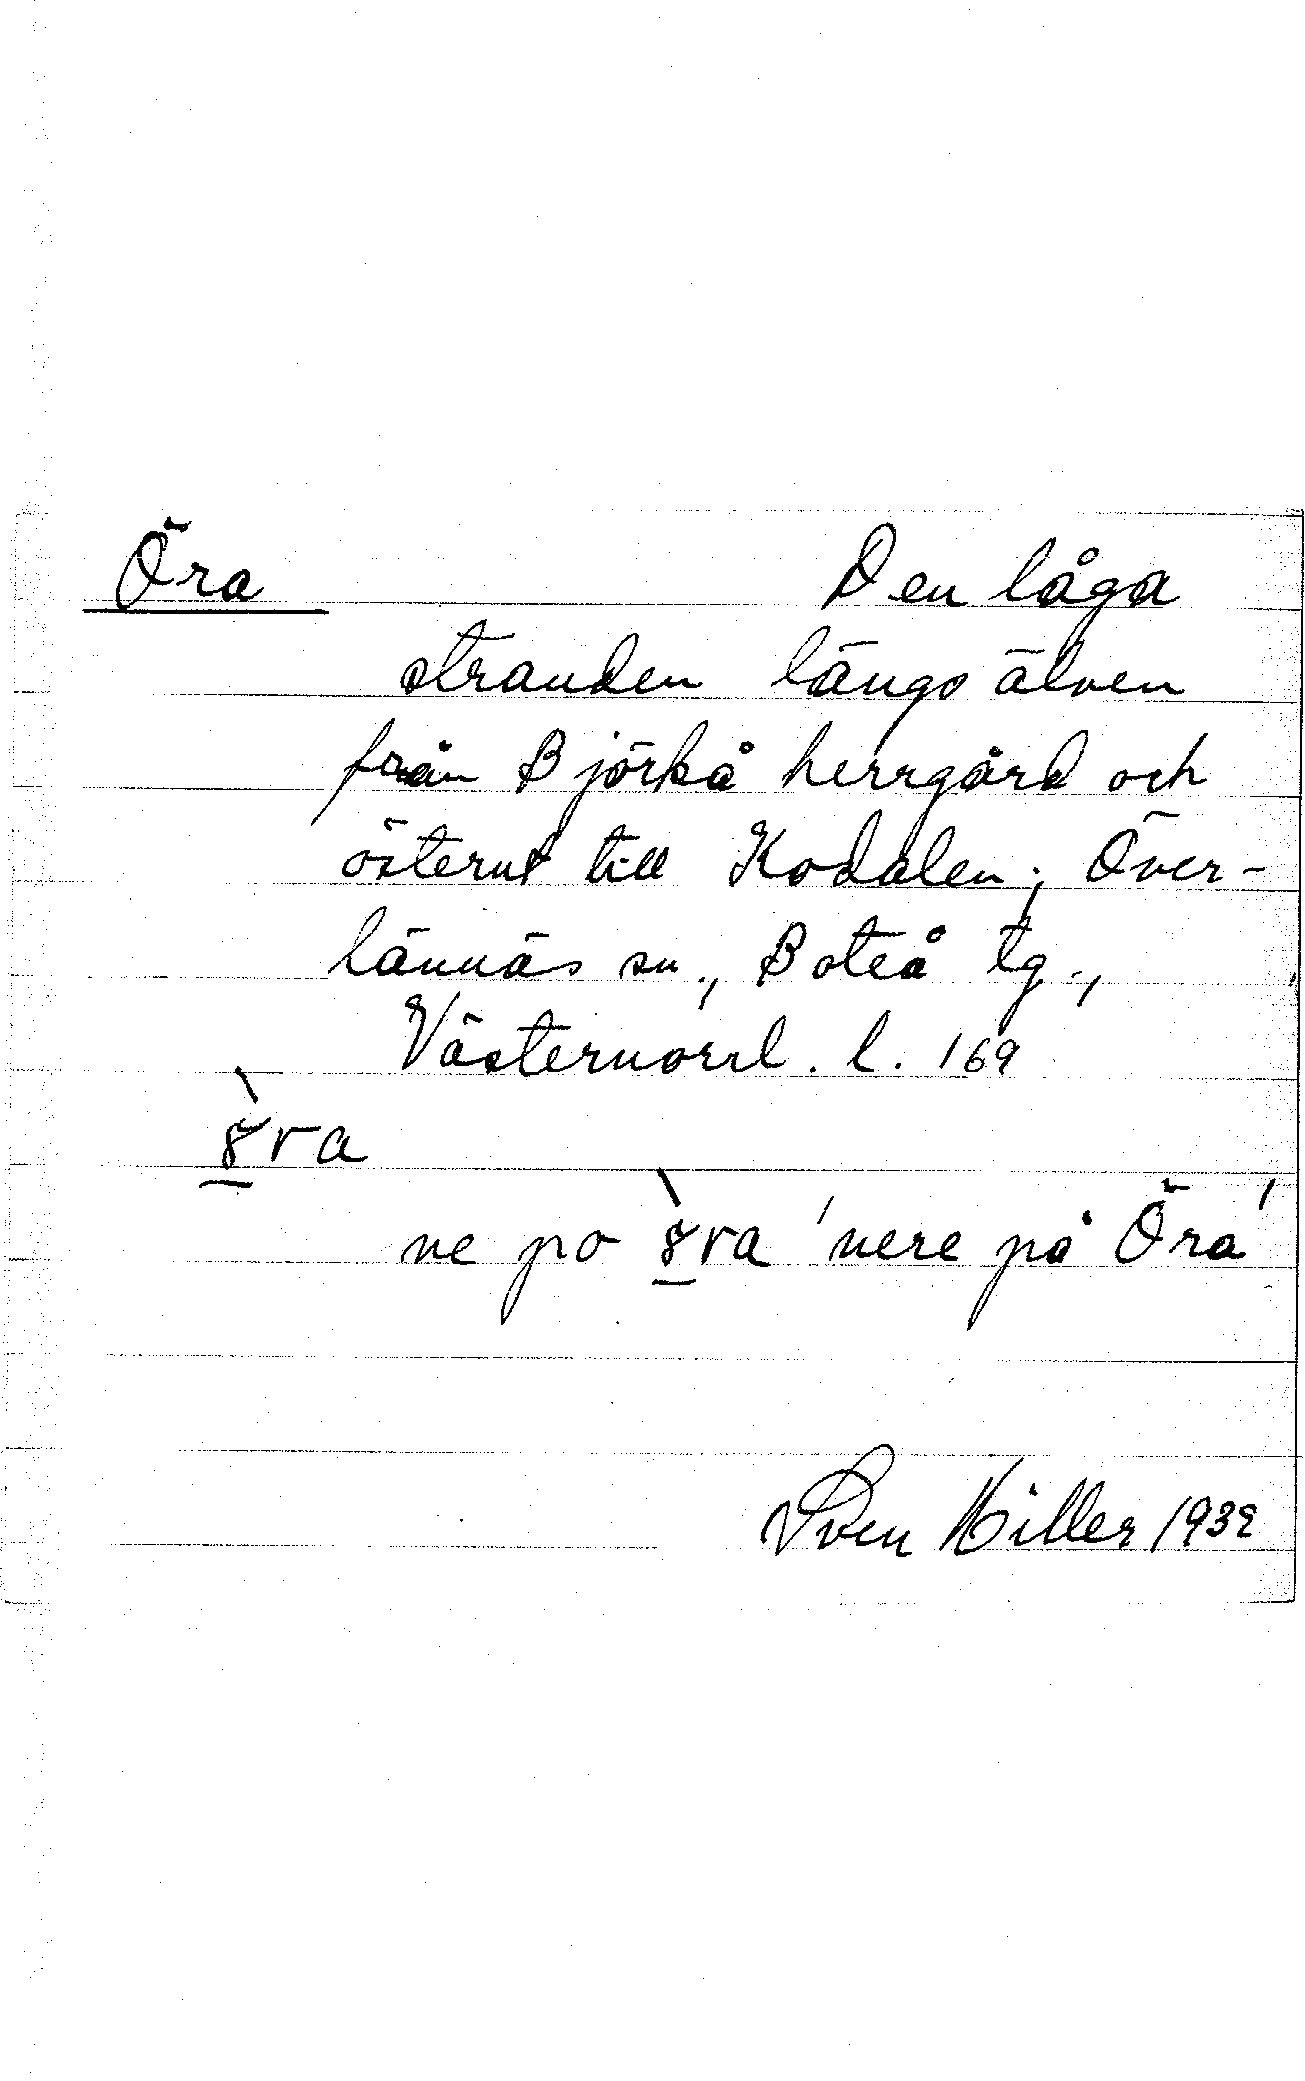 Öra Den låga
stranden längs älven
från Björkå herrgård och
österut till Kodalen; Över-
lännäs sn., Boteå tg.,
Västernorrl. l. 169
ve po 'nere på Öra'
Sven Hiller 1932